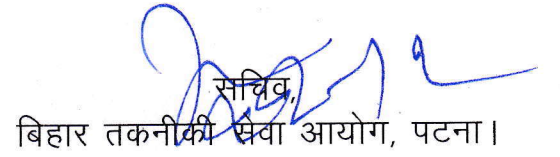 सचिव,
बिहार तकनीकी सेवा आयोग, पटना।